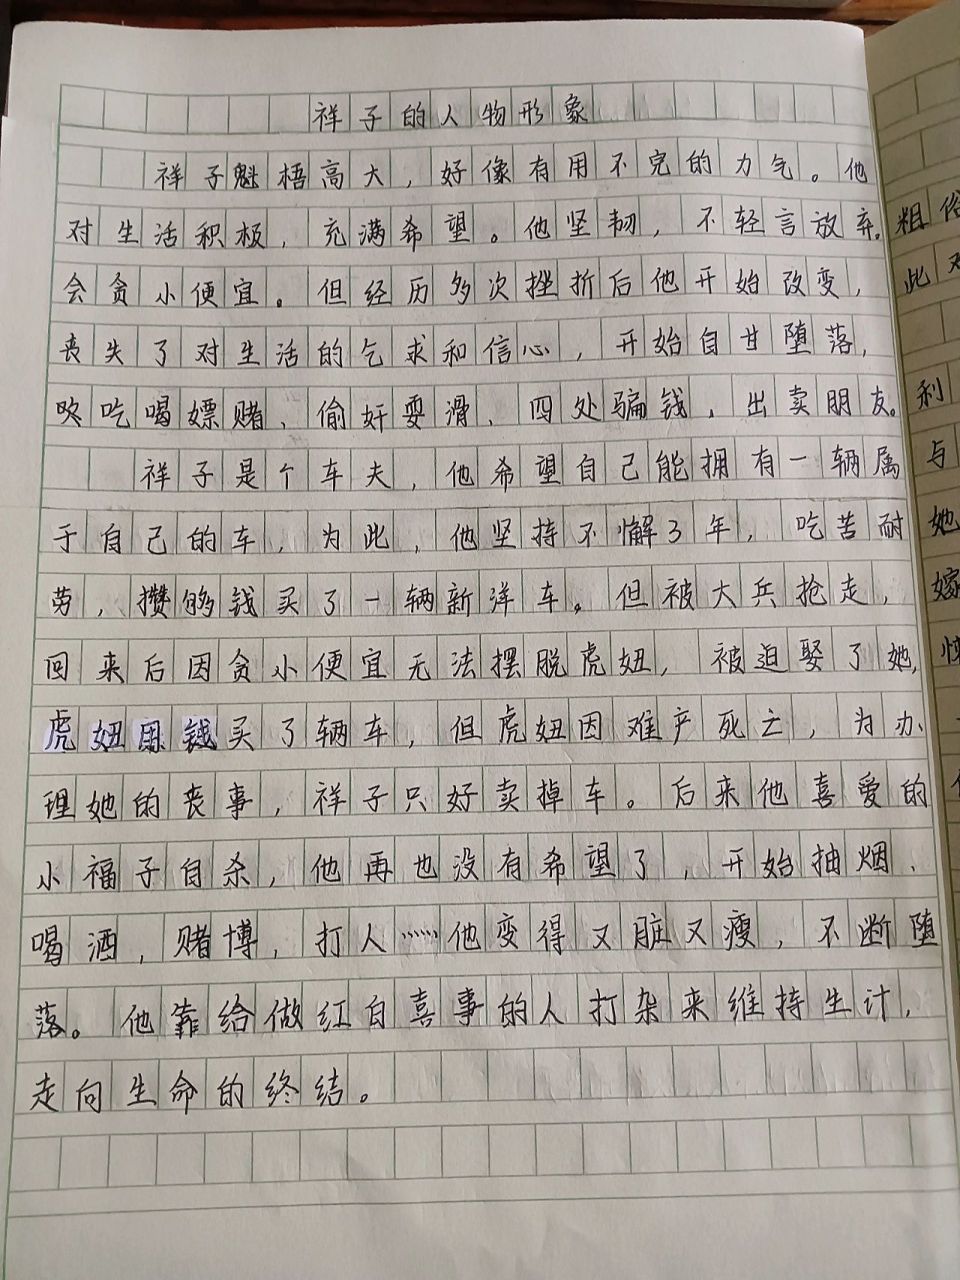 祥子的人物形象
祥子魁梧高大，好像有用不完的力气。他
对生活积极，充满希望。他坚韧，不轻言放弃。
会贪小便宜。但经历多次挫折后他开始改变，
丧失了对生活的乞求和信心，开始自甘堕落，
吃喝嫖赌、偷奸耍滑、四处骗钱，出卖朋友。
祥子是个车夫，他希望自己能拥有一辆属
于自己的车，为此，他坚持不懈3年，吃苦耐
劳，攒够钱买了一辆新洋车。但被大兵抢走，
回来后因贪小便宜无法摆脱虎妞，被迫娶了她，
虎妞用钱买了辆车，但虎妞因难产死亡，为办
理她的丧事，祥子只好卖掉车。后来他喜爱的
小福子自杀，他再也没有希望了，开始抽烟、
喝酒，赌博，打人……他变得又脏又瘦，不断堕
落。他靠给做红白喜事的人打杂来维持生计，
走向生命的终结。
粗俗
此对
利
与
她
嫁